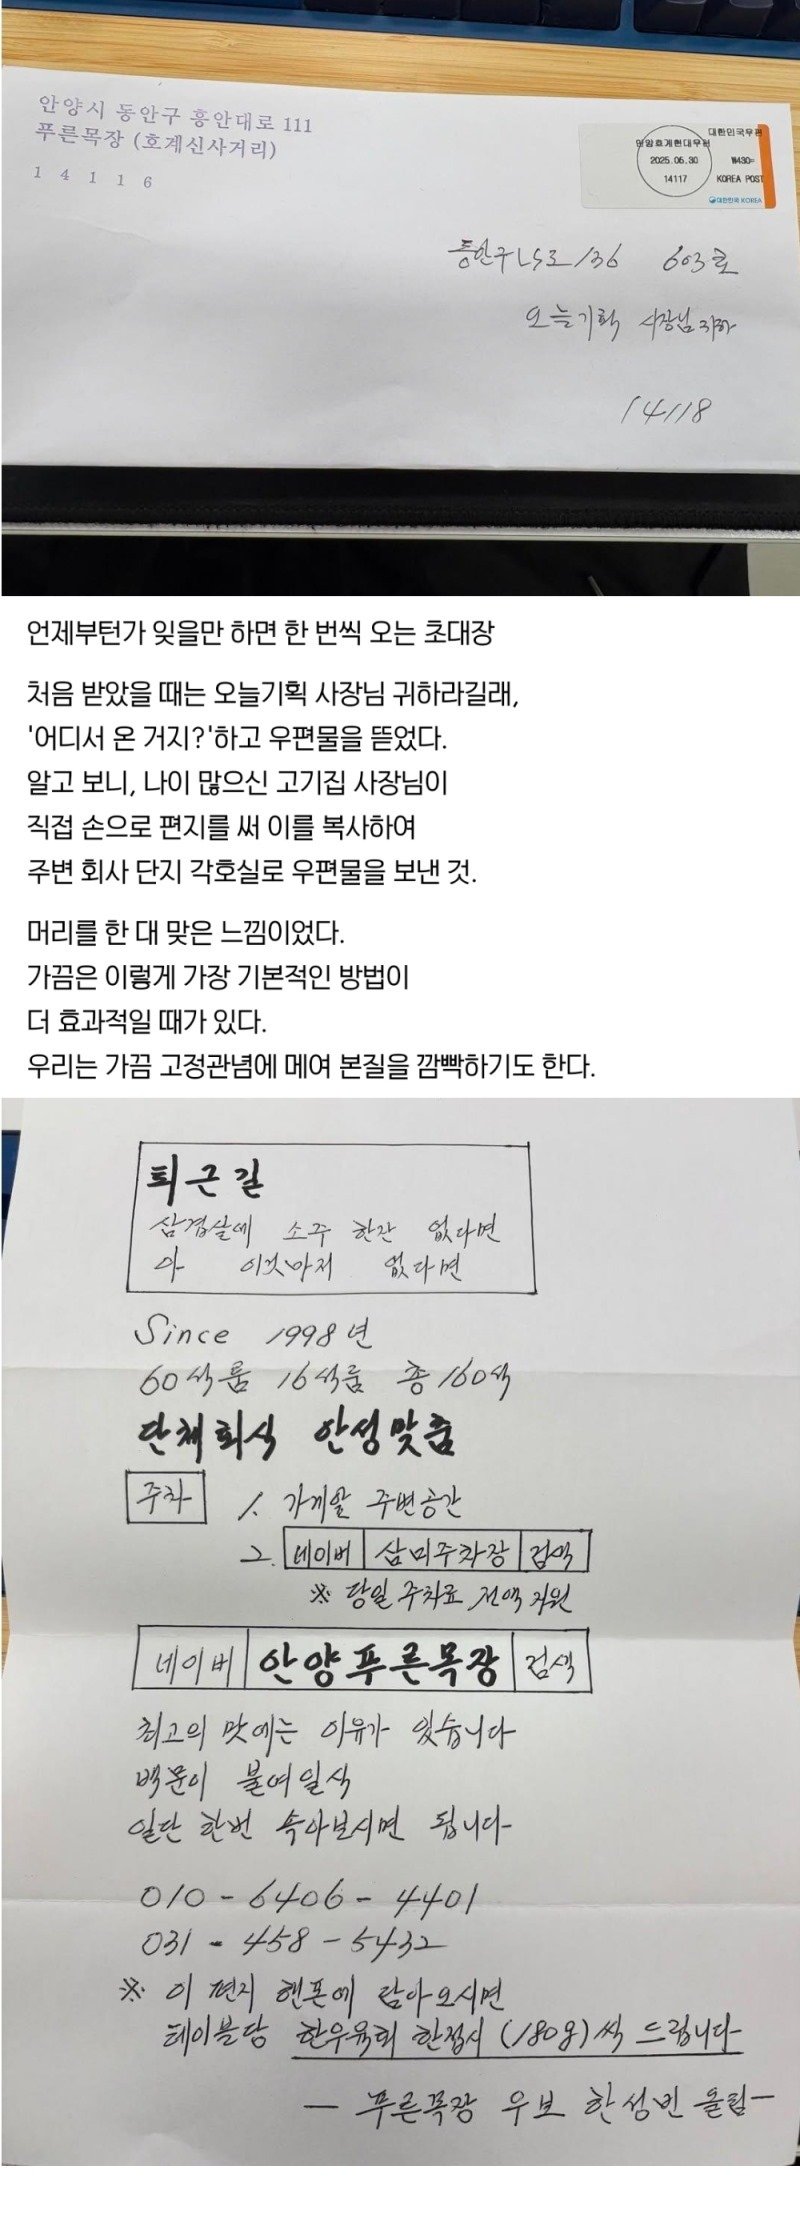 안양시 동안구 흥안대로 111
푸른목장 (호계신사거리)
1 4 1 1 6
대한민국우편
안양호계현대우체
2025.06.30
₩430
14117
KOREA POST
대한민국 KOREA
동안구 LS로 136 603호
오늘기획 사장님 귀하
14118
언제부턴가 잊을만 하면 한 번씩 오는 초대장
처음 받았을 때는 오늘기획 사장님 귀하라길래,
'어디서 온 거지?'하고 우편물을 뜯었다.
알고 보니, 나이 많으신 고기집 사장님이
직접 손으로 편지를 써 이를 복사하여
주변 회사 단지 각호실로 우편물을 보낸 것.
머리를 한 대 맞은 느낌이었다.
가끔은 이렇게 가장 기본적인 방법이
더 효과적일 때가 있다.
우리는 가끔 고정관념에 메여 본질을 깜빡하기도 한다.
퇴근길
삼겹살에 소주 한잔 없다면
아 이것마저 없다면
Since 1998년
60석룸 16석룸 총160석
단체회식 안성맞춤
주차 1. 가게앞 주변공간
2. 네이버 삼미주차장 검색
※ 당일 주차료 전액 지원
네이버 안양푸른목장 검색
최고의 맛에는 이유가 있습니다
백문이 불여일식
일단 한번 속아보시면 됩니다
010-6406-4401
031-458-5432
※ 이 편지 핸폰에 담아오시면
테이블당 한우육회 한접시 (180g)씩 드립니다
- 푸른목장 우보 한성빈 올림 -